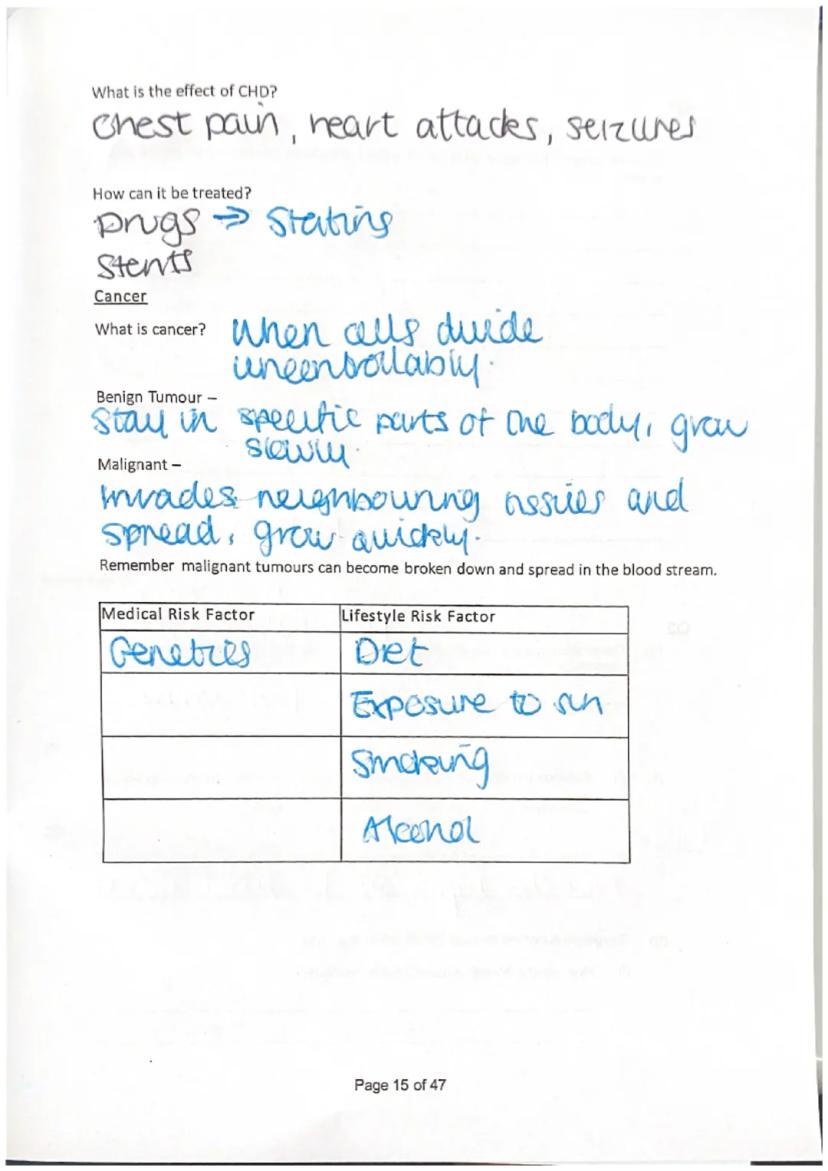 What is the effect of CHD?
Chest pain, heart attacks, seizures
How can it be treated?
Drugs ⇒ Statins
Stents
Cancer
What is cancer? When cells divide
uncontrollably.
Benign Tumour –
Stay in specific parts of the body, grow
slowly.
Malignant –
Invades neighbouring tissues and
spread, grow quickly.
Remember malignant tumours can become broken down and spread in the blood stream.
Medical Risk Factor Lifestyle Risk Factor
Genetics Diet
Exposure to sun
Smoking
Alcohol
Page 15 of 47